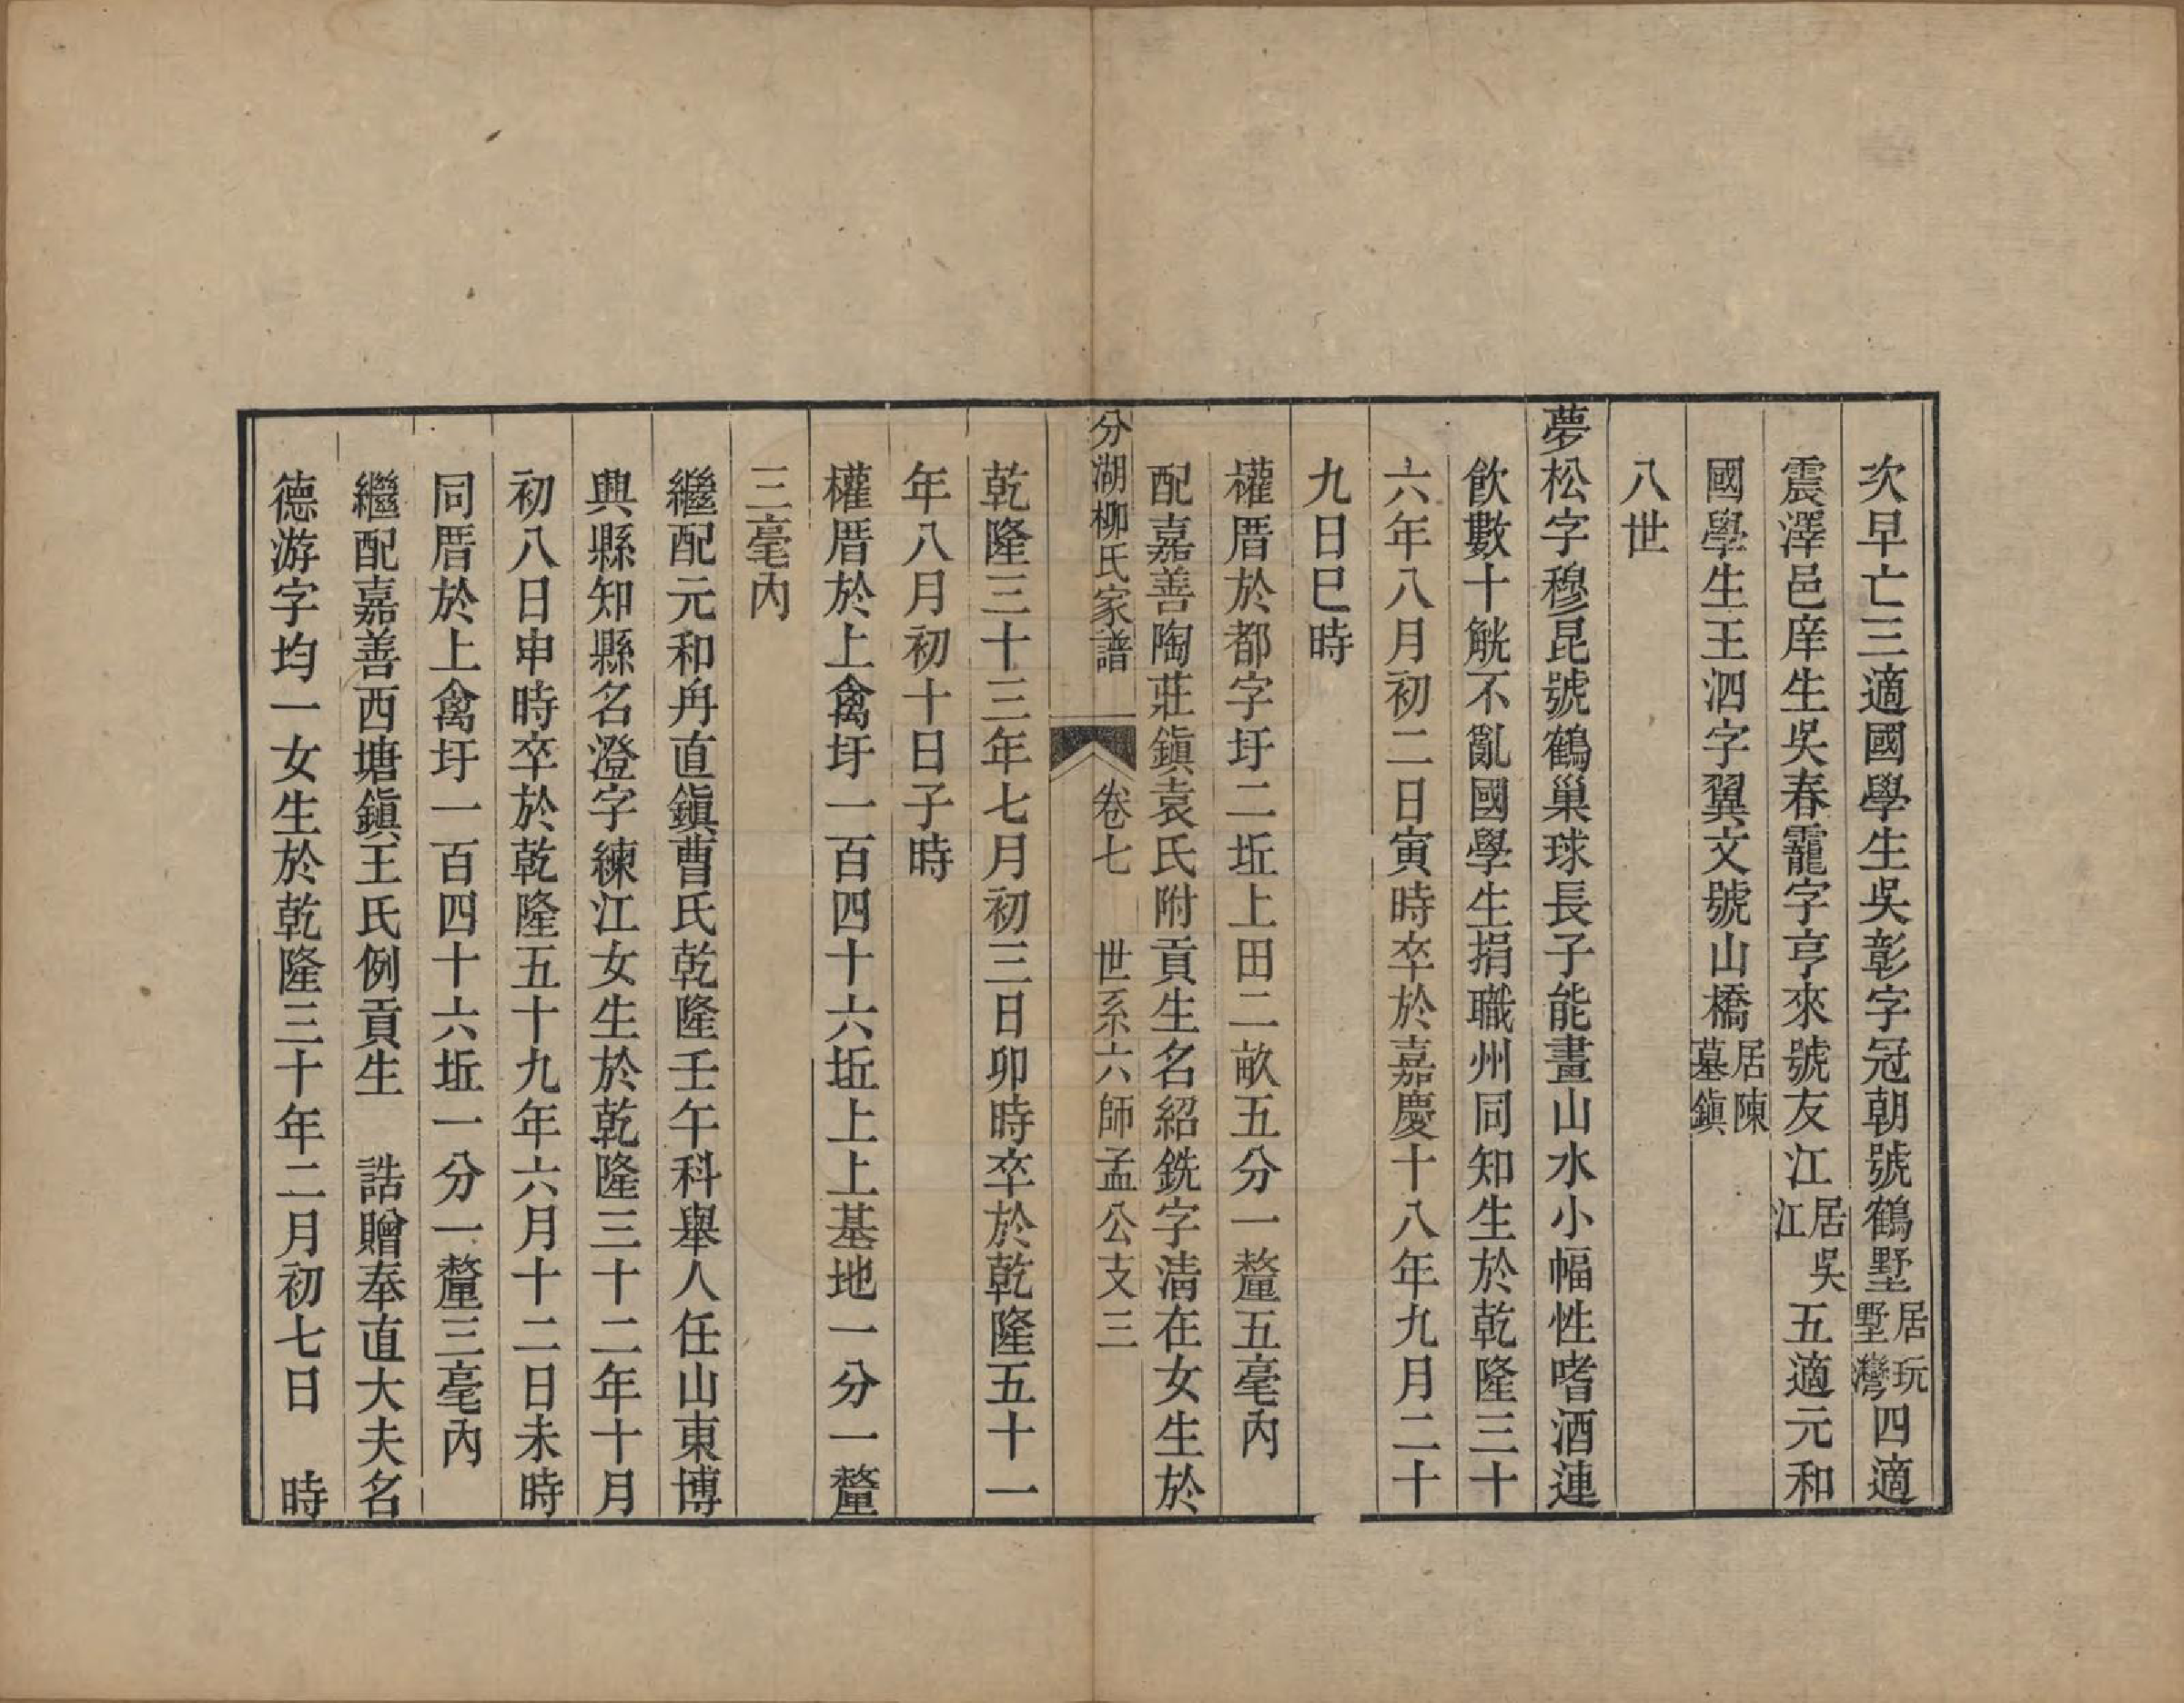 次早亡三適國學生吳彰字冠朝號鶴墅居玩墅灣四適
震澤邑庠生吳春龗字亨來號友江居吳江五適元和
國學生王泗字翼文號山橋居陳墓鎭
八世
夢松字穆昆號鶴巢球長子能畫山水小幅性嗜酒連
飲數十觥不亂國學生捐職州同知生於乾隆三十
六年八月初二日寅時卒於嘉慶十八年九月二十
九日巳時
權厝於都字圩二坵上田二畝五分一釐五毫內
配嘉善陶莊鎭袁氏附貢生名紹銑字淸在女生於
分湖柳氏家譜 卷七 世系六師孟公支三
乾隆三十三年七月初三日卯時卒於乾隆五十一
年八月初十日子時
權厝於上禽圩一百四十六坵上上基地一分一釐
三毫內
繼配元和甪直鎭曹氏乾隆壬午科舉人任山東博
興縣知縣名澄字練江女生於乾隆三十二年十月
初八日申時卒於乾隆五十九年六月十二日未時
同厝於上禽圩一百四十六坵一分一釐三毫內
繼配嘉善西塘鎭王氏例貢生 誥贈奉直大夫名
德游字均一女生於乾隆三十年二月初七日 時